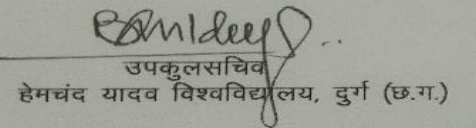 उपकुलसचिव
हेमचंद यादव विश्वविद्यालय, दुर्ग (छ.ग.)